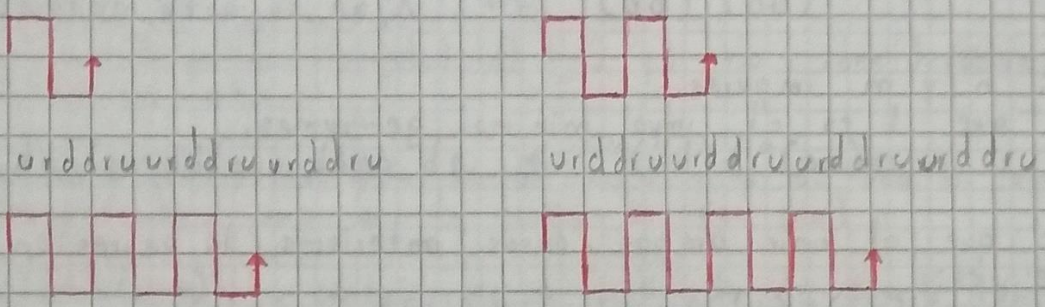 urddruurddruurddru
urddruurddruurddruurddru